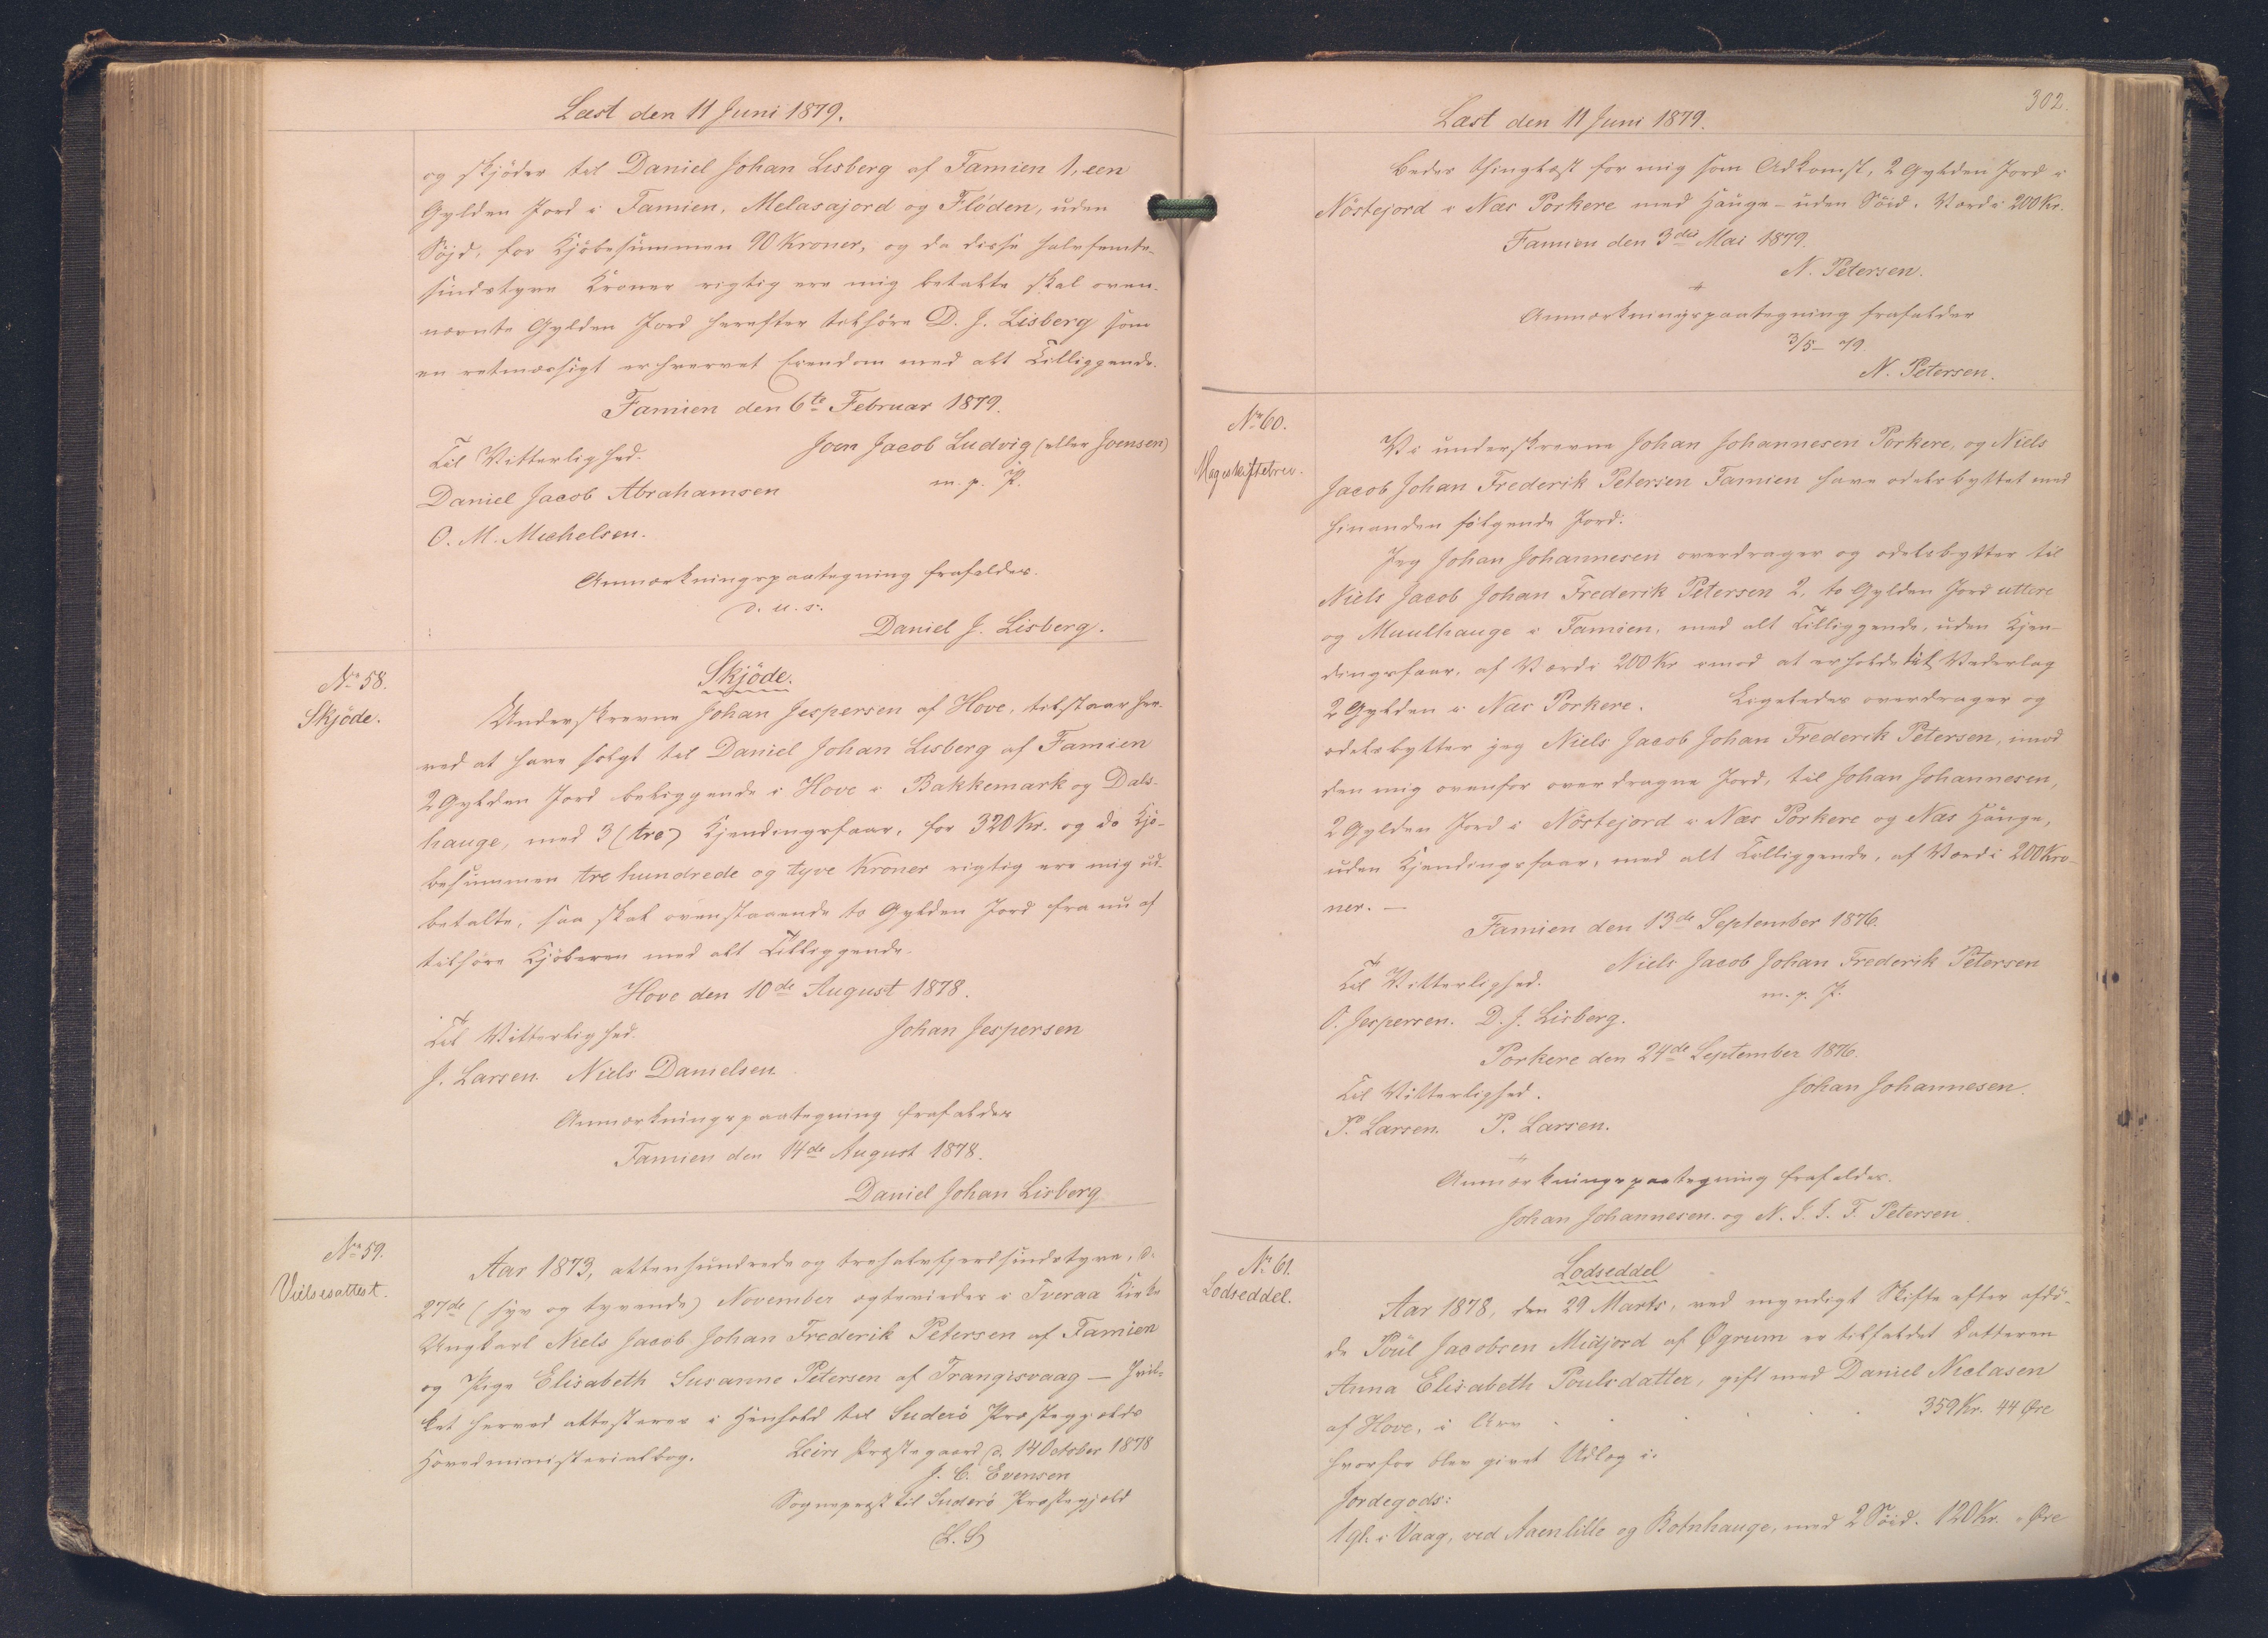 Læst den 11 Juni 1879.
og skjöder til Daniel Johan Lisberg af Famien 1, een
Gylden Jord i Famien, Melasajord og Flöden, uden
Söjd, for Kjöbesummen 90 Kroner, og da disse halvfemte-
sindstyve Kroner rigtig ere mig betalte skal oven-
nævnte Gylden Jord herefter tilhöre D. J. Lisberg som
en retmæssigt erhvervet Eiendom med alt Tilliggende.
Famien den 6te Februar 1879.
Til Vitterlighed.
Joen Jacob Ludvig (eller Joensen)
m. p. P.
Daniel Jacob Abrahamsen
O. M. Michelsen.
Anmærkningspaategning frafaldes.
D. u. s.
Daniel J. Lisberg.
No 58.
Skjöde.
Skjöde.
Underskrevne Johan Jespersen af Hove, tilstaar her-
ved at have solgt til Daniel Johan Lisberg af Famien
2 Gylden Jord beliggende i Hove i Bakkemark og Dals-
hauge, med 3 (tre) Kjendingsfaar, for 320 Kr. og da Kjö-
besummen tre hundrede og tyve Kroner rigtig ere mig ud-
betalte, saa skal ovenstaaende to Gylden Jord fra nu af
tilhöre Kjöberen med alt Tilliggende.
Hove den 10de August 1878.
Til Vitterlighed.
Johan Jespersen
J. Larsen. Niels Danielsen.
Anmærkningspaategning frafaldes
Famien den 14de August 1878.
Daniel Johan Lisberg
No 59.
Vielsesattest.
Aar 1873, attenhundrede og trehalvfjerdsindstyve, d.
27de (syv og tyvende) November ægteviedes i Tveraa Kirke
Ungkarl Niels Jacob Johan Frederik Petersen af Famien
og Pige Elisabeth Susanne Petersen af Trangisvaag — hvil-
ket herved attesteres i Henhold til Suderö Præstegjelds
Hovedministerialbog.
Leirs Præstegaard d. 14 October 1878
J. C. Evensen
Sognepræst til Suderö Præstegjeld
(L. S)
302.
Læst den 11 Juni 1879.
bedes thinglæst for mig som Adkomst, 2 Gylden Jord i
Nöstejord i Næs Porkere med Hauge - uden Söid. Værdi 200 Kr.
Famien den 3die Mai 1879.
N. Petersen.
Anmærkningspaategning frafaldes
3/5 - 79.
N. Petersen.
No 60.
Mageskiftebrev.
Vi underskrevne Johan Johannesen Porkere, og Niels
Jacob Johan Frederik Petersen Famien have odelsbyttet med
hinanden fölgende Jord:
Jeg Johan Johannesen overdrager og odelsbytter til
Niels Jacob Johan Frederik Petersen 2, to Gylden Jord uttere
og Muulhauge i Famien, med alt Tilliggende, uden Kjen-
dingsfaar, af Værdi 200 Kr imod at erholde til Vederlag
2 Gylden i Næs Porkere. Ligeledes overdrager og
odelsbytter jeg Niels Jacob Johan Frederik Petersen, imod
den mig ovenfor overdragne Jord, til Johan Johannesen,
2 Gylden Jord i Nöstejord i Næs Porkere og Næs Hauge,
uden Kjendingsfaar, med alt Tilliggende, af Værdi 200 Kro-
ner. —
Famien den 13de September 1876.
Til Vitterlighed.
Niels Jacob Johan Frederik Petersen
m. p. P.
O. Jespersen. D. J. Lisberg.
Porkere den 24de September 1876.
Til Vitterlighed.
Johan Johannesen.
P. Larsen. P. Larsen.
Anmærkningspaategning frafaldes.
Johan Johannesen. og N. J. J. F. Petersen.
No 61.
Lodseddel.
Lodseddel
Aar 1878, den 29 Marts, ved myndigt Skifte efter afdö-
de Poul Jacobsen Midjord af Øgrum er tilfaldet Datteren
Anna Elisabeth Poulsdatter, gift med Daniel Niclasen
af Hove, i Arv . . . . 359 Kr. 44 Øre
hvorfor blev givet Udlæg i:
Jordegods:
1 gl. i Vaag, ved Aaenlille og Botnhauge, med 2 Söid. 120 Kr. " Øre